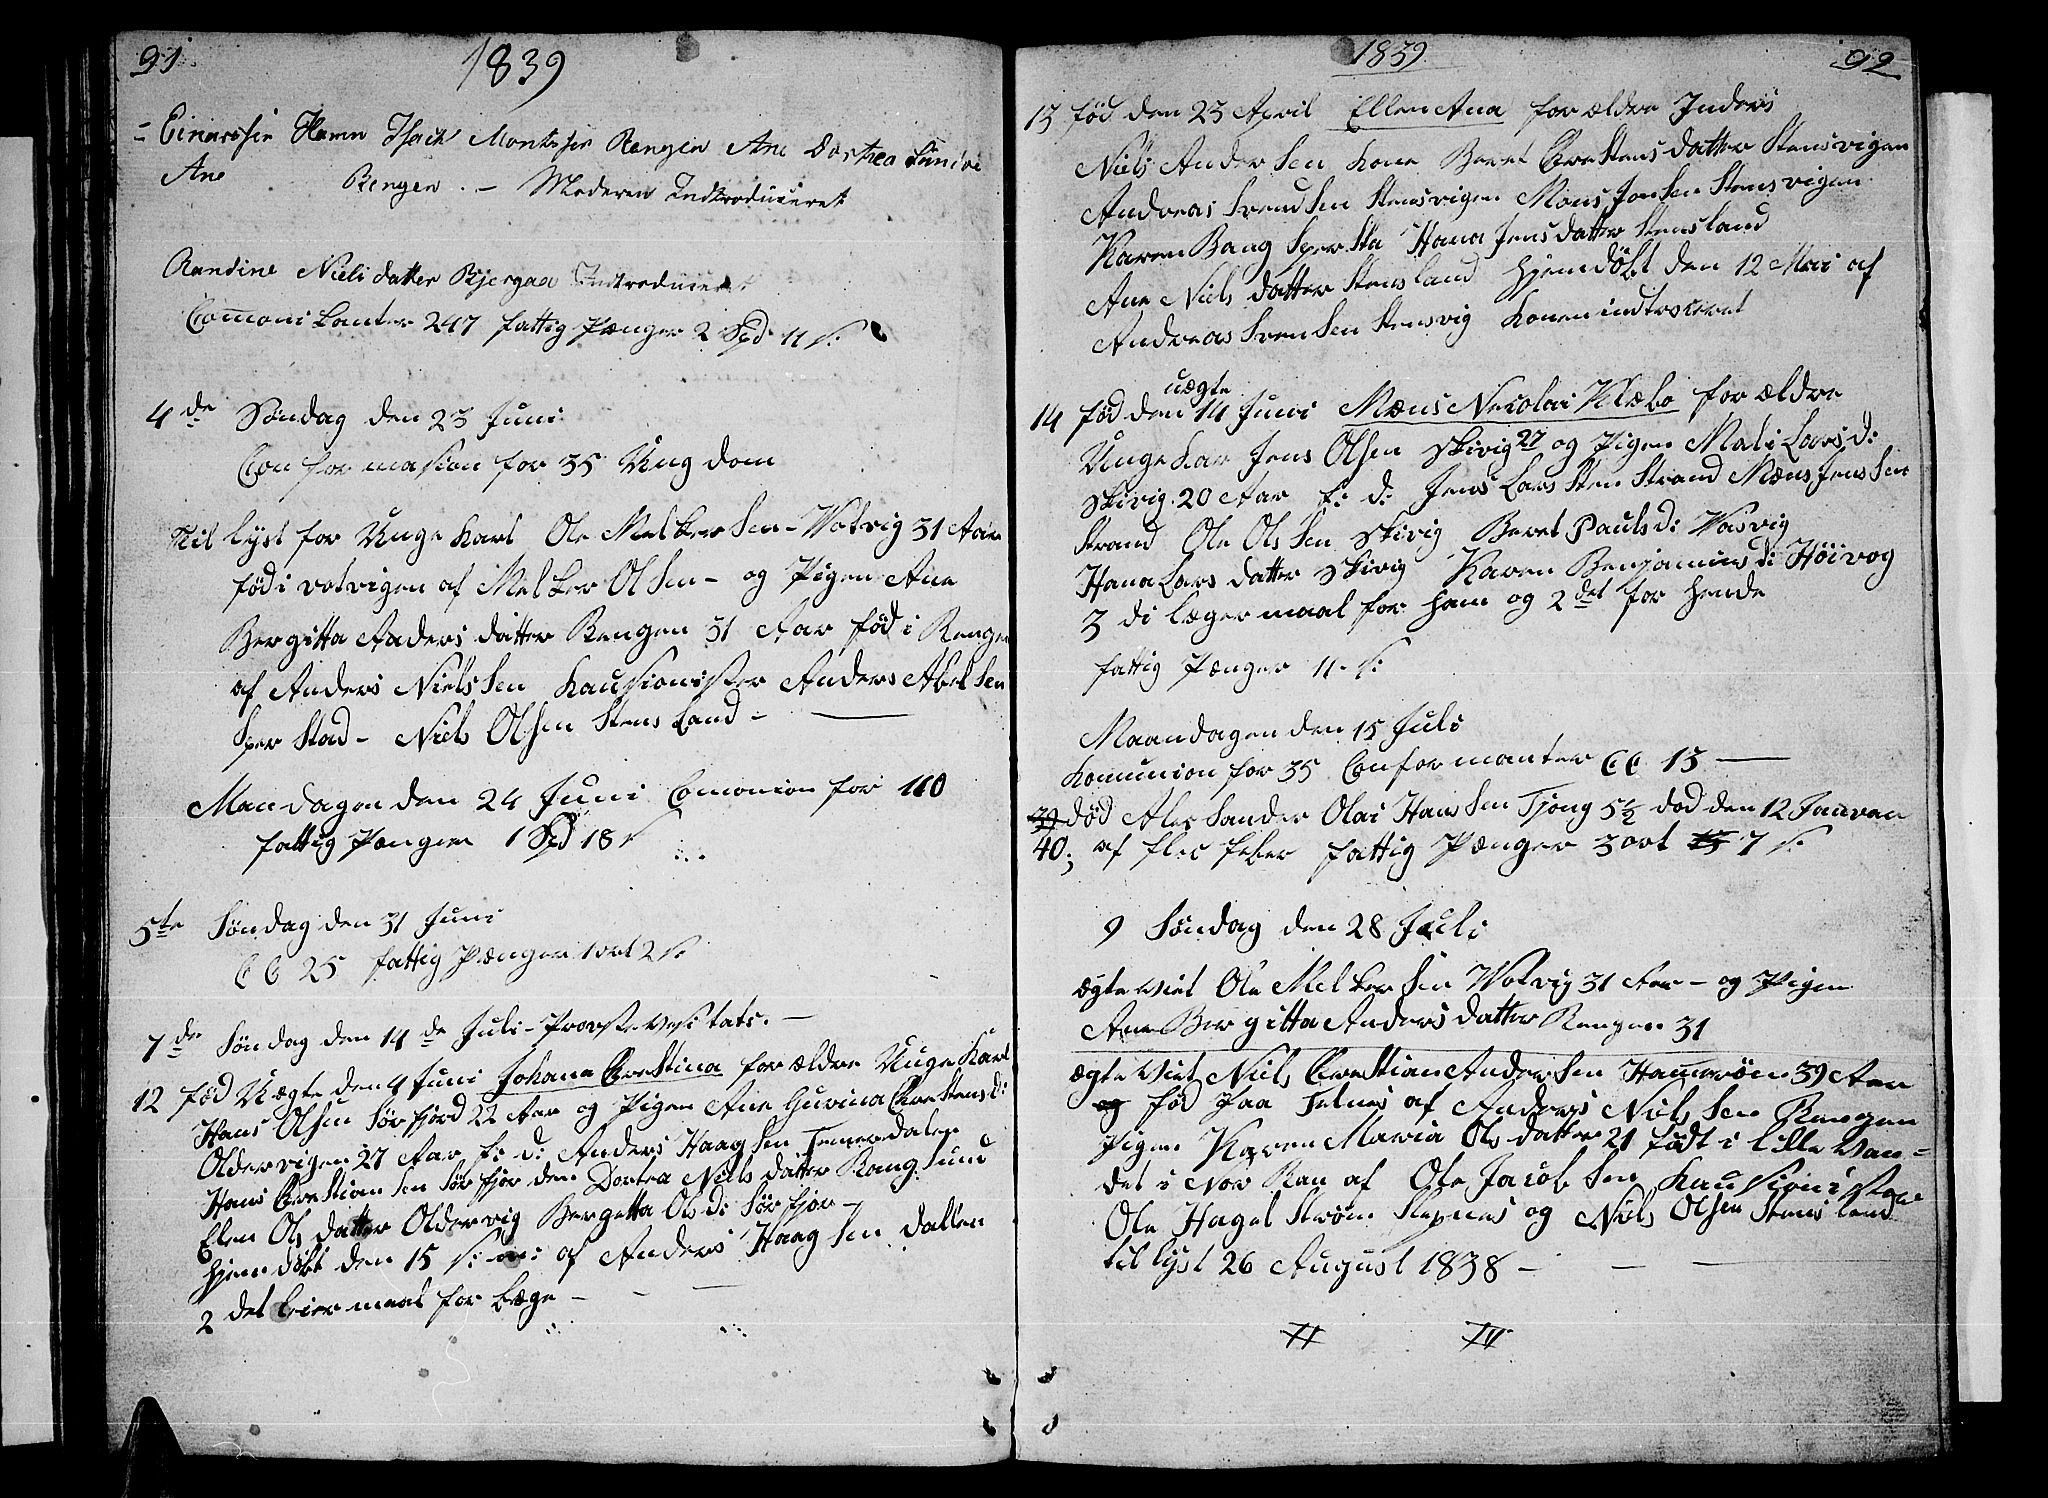 91
1839
Einersen Hamn Isach Montesen Rengen Ane Dortea
Ane Rengen . – Moderen Indtroduceret
Randine Nielsdatter Bjergaa Indtroduceret
Comonikanter 247 fattig Pænger 2 Spd 11 s:
4de Søndag den 23 Juni
Conformasion for 35 Ungdom
Til lyst for Unge Karl Ole Melkersen – Votvig 31 Aar
fød i votvigen af Melker Olsen – og Pigen Ane
Bergitta Andersdatter Rengen 31 Aar fød i Rengen
af Anders Nielssen Kausionister Anders Abelsen
Sperstad – Niels Olsen Stensland –
Mandagen den 24 Juni Comonion for 110
fattig Pænger 1 Spd 18 s
5te Søndag den 31 Juni
C C 25 fattig Pænger 1 ort 2 s.
7de Søndag den 14de Juli – Provstevisitats. –
12 fød Uægte den 4 Juni Johana Crestina forældre Unge Karl
Hans Olsen Sørfjord 22 Aar og Pigen Ane Guvina Crestensd:
Oldervigen 27 Aar f: d: Anders Haagsen Temerdalen
Hans Crestiansen Sørfjorden Dortea Nielsdatter Rangsund
Elen Olsdatter Oldervig Bergetta Olsd: Sørfjor –
hjemdøbt den 15 s: m: af Anders Haagsen Dallen
2 det leiermaal for bæge –
1839
92
13 fød den 23 April Ellen Ana forældre Inders
Niels Andersen kone Beret Crestensdatter Stensvigen
Andreas Svendsen Stensvigen Mons Jonsen Stensvigen
Karen Bang Spersta Hana Jensdatter Stensland
Ane Nielsdatter Stensland hjemdøbt den 12 Mai af
Andreas Svensen Stensvig Konen indtroseret
uægte
14 fød den 14 Juni Mæns Necolai Klæbo forældre
Ungekar Jens Olsen Skivig 27 og Pigen Mali Larsd:
Skivig 20 Aar f: d: Jens Larssten Strand Mæns Jenssen
Strand Ole Olssen Skivig Beret Paulsd: Vasvig
Hana Larsdatter Skivig Karen Benjaminsd: Höivog
3 di lægermaal for ham og 2det for hende
fattig Pænger 11 – s:
Maandagen den 15 Juli
Komunion for 35 Conformanter C C 13 –
39 død Alecsander Olai Hanssen Tjong 5½ død den 12 Januar
40; af flecfeber fattig Pænger 3 ort 13 7 s:
9 Søndag den 28 Juli
ægteviet Ole Melkersen Votvig 31 Aar – og Pigen
Ane Bergitta Andersdatter Rengen 31
ægteviet Niels Crestian Andersen Hamerøn 39 Aar
og fød Paa Telnes af Anders Nielssen Rengen
Pigen Karen Maria Olsdatter 21 født i Lille Van=
det i Nor Ran af Ole Jacobsen Kausionister
Ole Hagel Strøm Slepnes og Niels Olsen Stensland
til lyst 26 August 1838 –